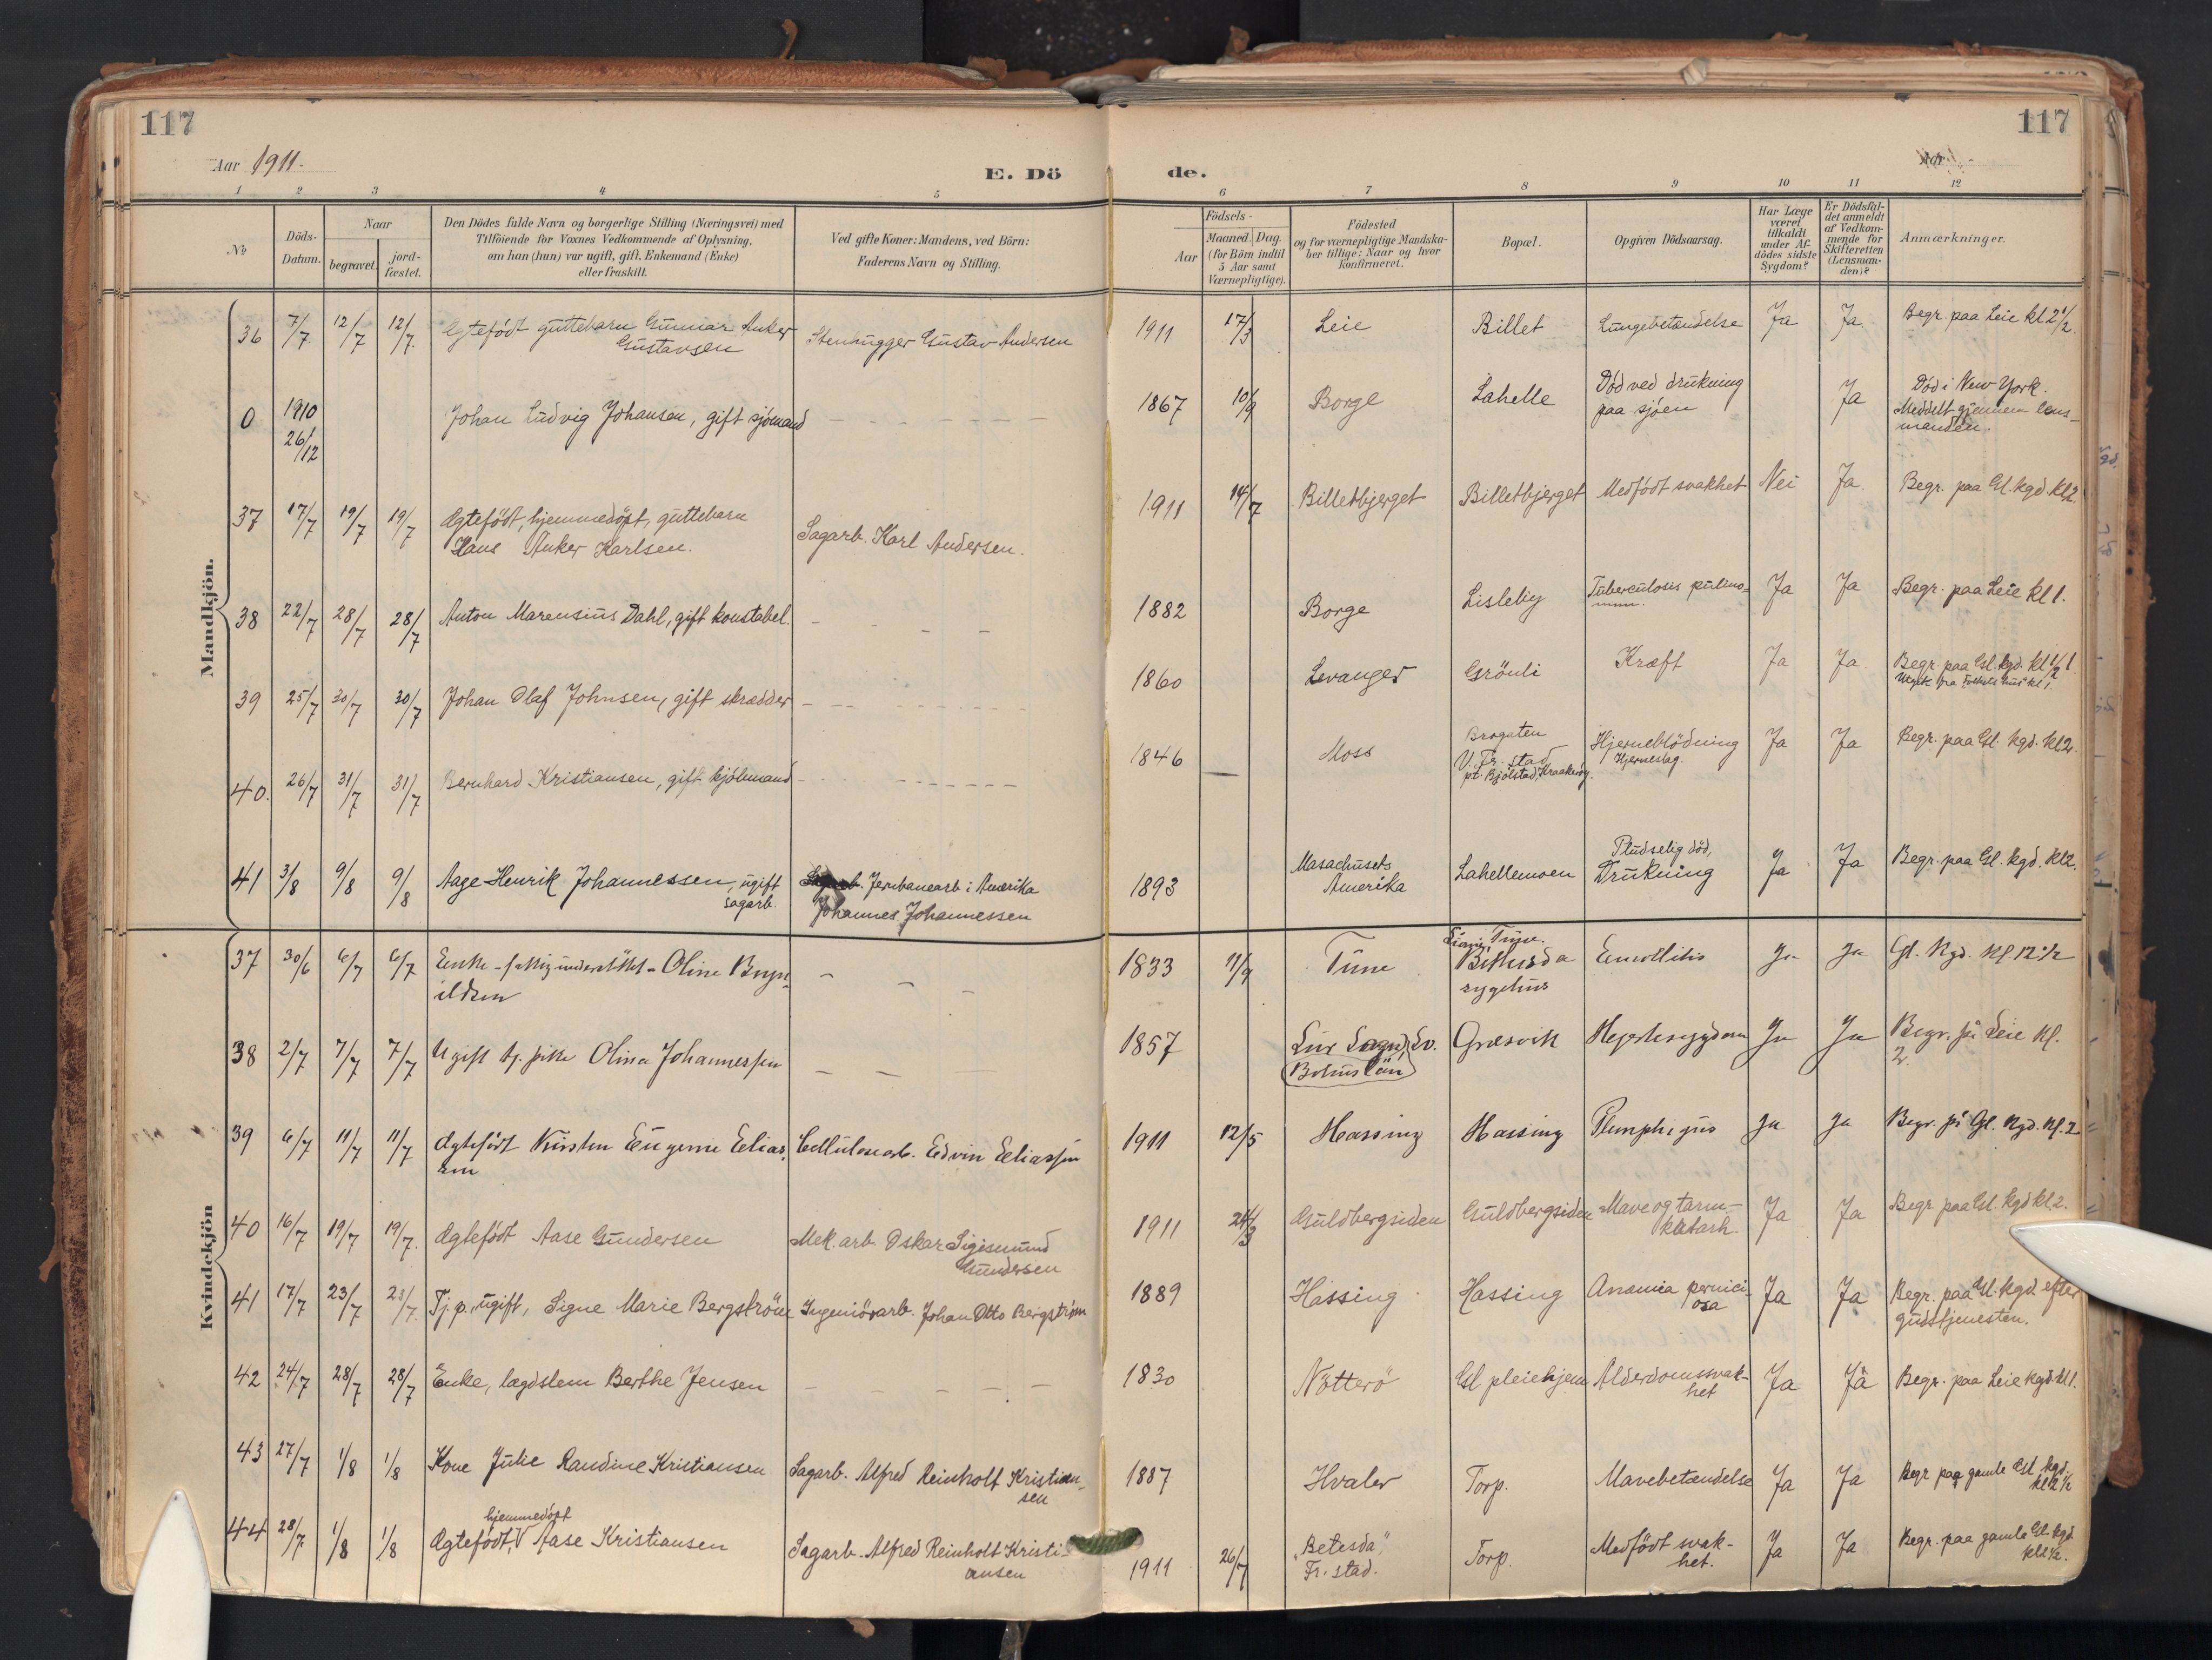 117
117
Aar 1911.
E. Dö
de.
1 2 3 4 5 6 7 8 9 10 11 12
№
Döds-
Datum.
Naar
begravet.
jord-
fæstet.
Den Dödes fulde Navn og borgerlige Stilling (Næringsvei) med
Tilföiende for Voxnes Vedkommende af Oplysning,
om han (hun) var ugift, gift, Enkemand (Enke)
eller fraskilt.
Ved gifte Koner: Mandens, ved Börn:
Faderens Navn og Stilling.
Födsels-
Aar
Maaned. Dag.
(for Börn indtil
5 Aar samt
Værnepligtige).
Födested
og for værnepligtige Mandska-
ber tillige: Naar og hvor
konfirmeret.
Bopæl.
Opgiven Dödsaarsag.
Har Læge
været
tilkaldt
under Af-
dödes sidste
Sygdom?
Er Dödsfal-
det anmeldt
af Vedkom-
mende for
Skifteretten
(Lensman-
den)?
Anmærkninger.
Mandkjön.
36 7/7 12/7 12/7. Egtefödt guttebarn Gunnar Anker Stenhugger Gustav Andersen 1911 17/3 Leie Billet Lungebetændelse Ja Ja. Begr. paa Leie kl 2 1/2.
Gustavsen
0 1910 Johan Ludvig Johansen, gift sjömand 1867 10/9 Borge Lahelle Död ved drukning Ja Död i New York.
26/12 paa sjöen Meddelt gjennem lens-
manden.
37 17/7 19/7 19/7 Ægtefödt, hjemmedöpt, guttebarn Sagarb. Karl Andersen. 1911 14/7 Billetbjerget Billetbjerget Medfödt svakhet Nei Ja. Begr. paa Gl. kgd. kl 2.
Hans Anker Karlsen.
38 22/7 28/7 28/7 Anton Marensius Dahl, gift konstabel. 1882 Borge Lisleby Tuberculosis pulmo- Ja Ja Begr. paa Leie kl 1.
num.
39 25/7 30/7 30/7 Johan Olaf Johnsen, gift skrædder 1860 Levanger Grönli Kræft Ja Ja. Begr. paa Gl. kgd. kl 1/2 1.
40. 26/7 31/7 31/7 Bernhard Kristiansen, gift kjöbmand 1846 Moss Brogaten Hjerneblödning Ja Ja Begr. paa Gl. kgd. kl 2.
V. Fr. stad Hjerneslag.
pt. Bjölstad, Kraakeröy.
41 3/8 9/8 9/8 Aage Henrik Johannessen, ugift Jernbanearb i Amerika 1893 Masachusets Lahellemoen Pludselig död, Ja Ja Begr. paa Gl. kgd. kl 2.
sagarb. Johannes Johannessen Amerika Drukning
Kvindekjön
37 30/6 6/7 6/7 Enke - fattigunderstöttet - Oline Bryn- 1833 11/9 Tune Tune. Ja Ja Gl. Kgd. Kl. 12 1/2
ildsen Bethesda
sygehus
38 2/7 7/7 7/7 Ugift tj. pike Olina Johannessen 1857 Lur Sogn, Sv. Græsvik Hjertesygdom Ja Ja Begr. på Leie Kl.
Bohus län 2.
39 6/7 11/7 11/7 Ægtefödt Kirsten Eugenie Elias- Cellulosearb. Edvin Eliassen 1911 12/5 Hassing Hassing Pemphigus Ja Ja Begr. på Gl. Kgd. Kl. 2
sen
40 16/7 19/7 19/7. Ægtefödt Aase Gundersen Mek. arb. Oskar Sigismund 1911 24/3 Guldbergsiden Guldbergsiden Mave og tarm- Ja Ja Begr. paa Gl. kgd kl 2.
Gundersen katarh.
41 17/7 23/7 23/7. Tj. p., ugift, Signe Marie Bergström Ingeniörarb. Johan Otto Bergström 1889 Hassing Hassing Anæmia pernici- Ja Ja Begr. paa Gl. kgd. efter
osa gudstjenesten.
42 24/7 28/7 28/7 Enke, lægdslem Berthe Jensen 1830 Nötterö Gl pleiehjem Alderdomssvak- Ja Ja Begr. paa Leie kgd. kl 1.
het
43 27/7 1/8 1/8 Kone Julie Randine Kristiansen Sagarb. Alfred Reinholt Kristian- 1887 Hvaler Torp. Mavebetændelse Ja Ja Begr paa gamle Gl. kgd.
sen kl 2 1/2
hjemmedöpt
44 28/7. 1/8 1/8 Ægtefödt, Aase Kristiansen Sagarb. Alfred Reinholt Kristi- 1911 26/7 "Betesda", Torp. Medfödt svak- Ja Ja Begr. paa gamle Gl. kgd
ansen Fr. stad. het. kl 2 1/2.